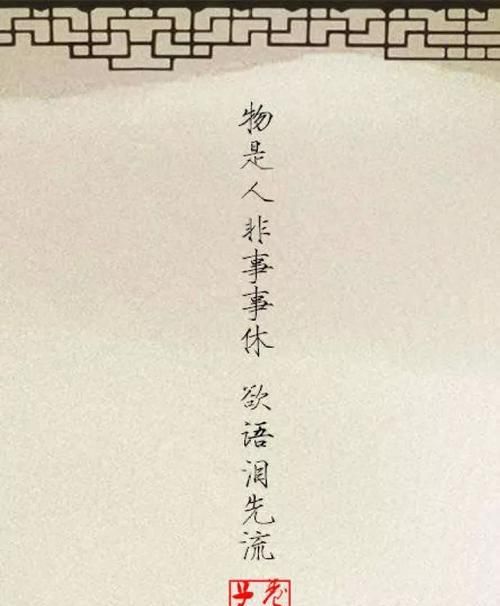 物是人非事事休 欲语泪先流